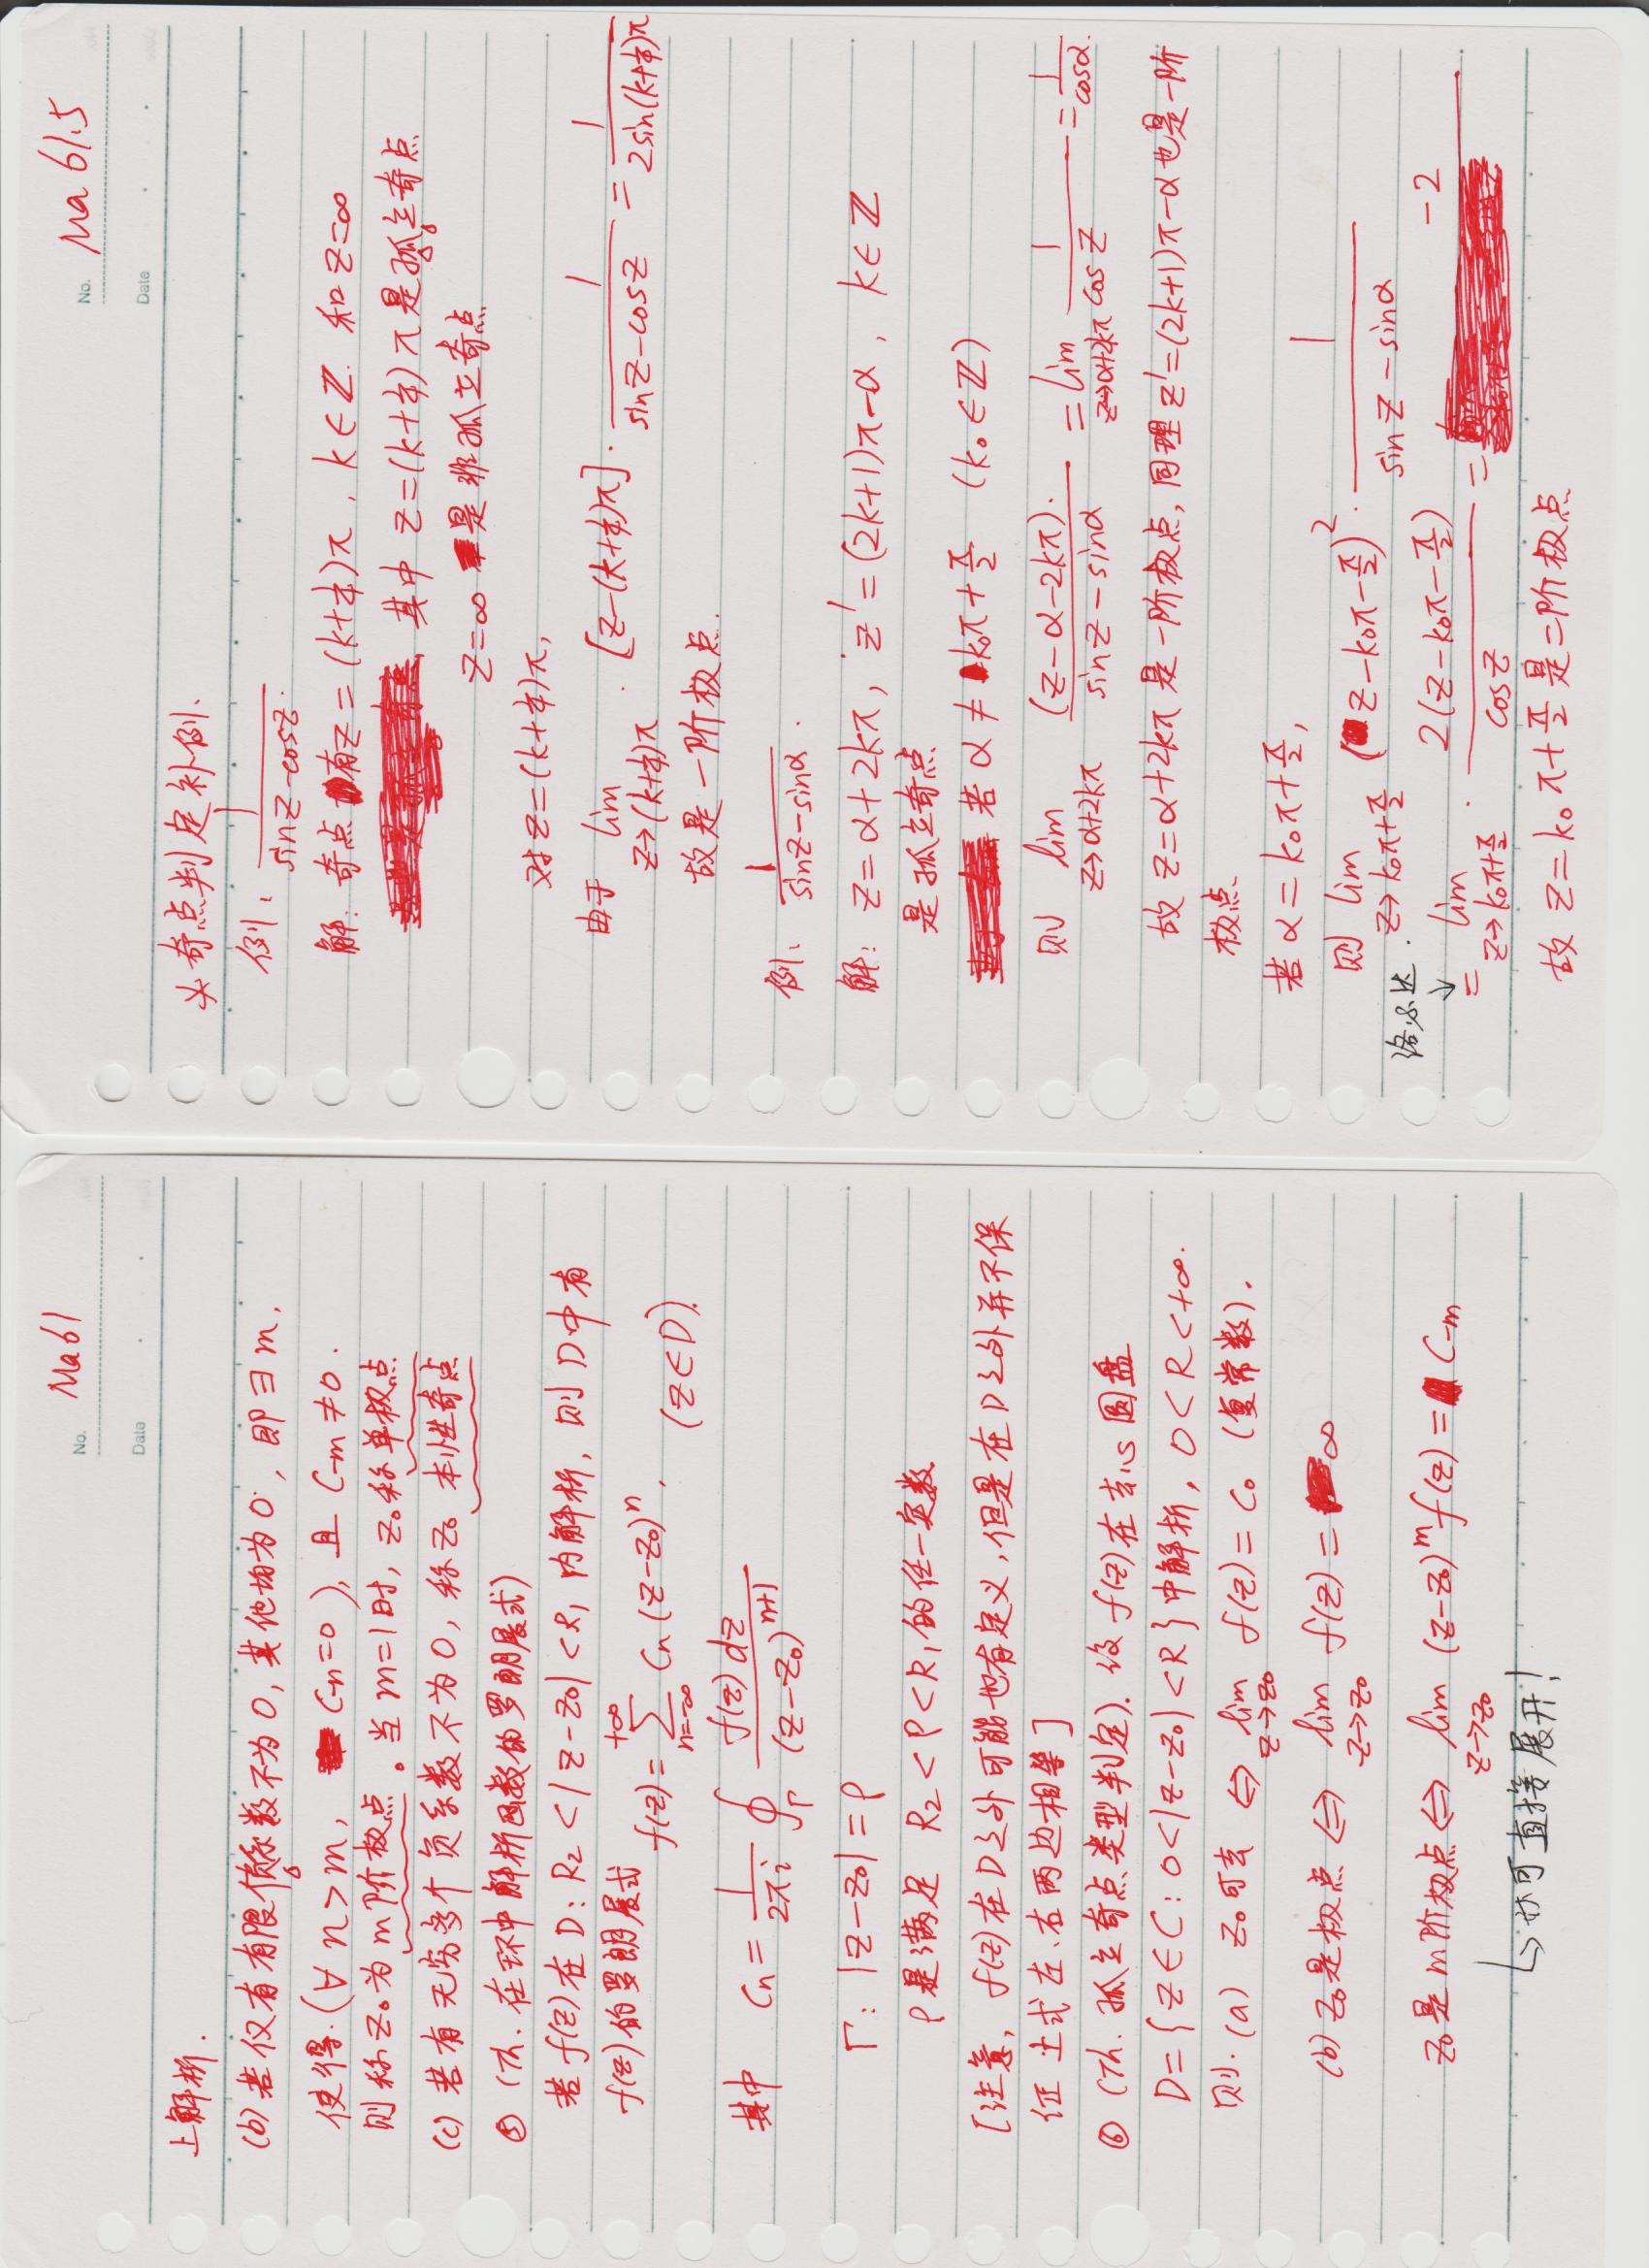 No. Ma61
Date
上解析.
(b) 若仅有有限负系数不为0, 其他均为0, 即∃m,
使得(∀n>m, C-n=0), 且 C-m≠0.
则称z₀为m阶极点。当m=1时, z₀称单极点
(c) 若有无穷多个负系数不为0, 称z₀ 本性奇点
⑤ (Th. 在环中解析函数的罗朗展式)
若f(z)在D: R₂<|z-z₀|<R₁内解析, 则D中有
f(z)的罗朗展式 f(z)=∑_{n=-∞}^{+∞} Cn(z-z₀)ⁿ. (z∈D).
其中 Cn = 1/(2πi) ∮_Γ f(z)dz/(z-z₀)^{n+1}
Γ: |z-z₀|=ρ
ρ是满足 R₂<ρ<R₁的任一实数
[注意, f(z)在D之外可能也有定义, 但是在D之外并不保
证上式左、右两边相等]
⑥ (Th. 孤立奇点类型判定). 设f(z)在去心圆盘
D={z∈C: 0<|z-z₀|<R}中解析, 0<R<+∞.
则. (a) z₀可去 ⇔ lim_{z→z₀} f(z)=C₀ (复常数).
(b) z₀是极点 ⇔ lim_{z→z₀} f(z)=∞
z₀是m阶极点 ⇔ lim_{z→z₀} (z-z₀)^m f(z)=C-m
↳ 亦可直接展开!
No. Ma 61.5
Date
※ 奇点判定补例.
例: 1/(sinz-cosz).
解: 奇点有z=(k+1/4)π, k∈ℤ. 和z=∞
其中 z=(k+1/4)π是孤立奇点
z=∞ 是非孤立奇点
对z=(k+1/4)π,
由于 lim_{z→(k+1/4)π} · [z-(k+1/4)π] · 1/(sinz-cosz) = 1/(2sin(k+1/4)π)
故是一阶极点.
例: 1/(sinz-sinα).
解: z=α+2kπ, z'=(2k+1)π-α, k∈ℤ
是孤立奇点
若α≠k₀π+π/2 (k₀∈ℤ)
则 lim_{z→α+2kπ} (z-α-2kπ)/(sinz-sinα) = lim_{z→α+2kπ} 1/cosz = 1/cosα.
故 z=α+2kπ是一阶极点, 同理z'=(2k+1)π-α也是一阶
极点
若α=k₀π+π/2,
则 lim_{z→k₀π+π/2} (z-k₀π-π/2)² · 1/(sinz-sinα)
洛必达.
↓
= lim_{z→k₀π+π/2} · 2(z-k₀π-π/2)/cosz = -2/
故 z=k₀π+π/2 是二阶极点